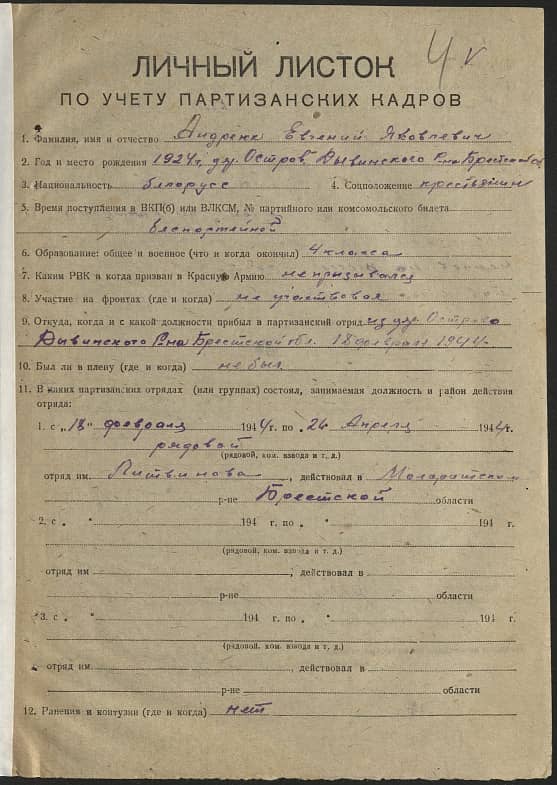 4 к
ЛИЧНЫЙ ЛИСТОК
ПО УЧЕТУ ПАРТИЗАНСКИХ КАДРОВ
1. Фамилия, имя и отчество Андреюк Евгений Яковлевич
2. Год и место рождения 1924 г. д. Остров Дывинского р-на Брестской об
3. Национальность белорусс 4. Соцположение крестьянин
5. Время поступления в ВКП(б) или ВЛКСМ, № партийного или комсомольского билета
беспартейной
6. Образование: общее и военное (что и когда окончил) 4 класса
7. Каким РВК и когда призван в Красную Армию не призывался
8. Участие на фронтах (где и когда) не участвовал
9. Откуда, когда и с какой должности прибыл в партизанский отряд из д. Острова
Дывинского р-на Брестской обл. 18 февраля 1944
10. Был ли в плену (где и когда) не был
11. В каких партизанских отрядах (или группах) состоял, занимаемая должность и район действия
отряда:
1. с „18" февраля 1944 г. по „26 Апреля 1944 г.
рядовой
(рядовой, ком. взвода и т. д.)
отряд им. Литвинова, действовал в Малоритском
р-не Брестской области
2. с „ " 194 г. по „ " 194 г.
(рядовой, ком. взвода и т. д.)
отряд им. , действовал в
р-не области
3. с „ " 194 г. по „ " 194 г.
(рядовой, ком. взвода и т. д.)
отряд им. , действовал в
р-не области
12. Ранения и контузии (где и когда) нет